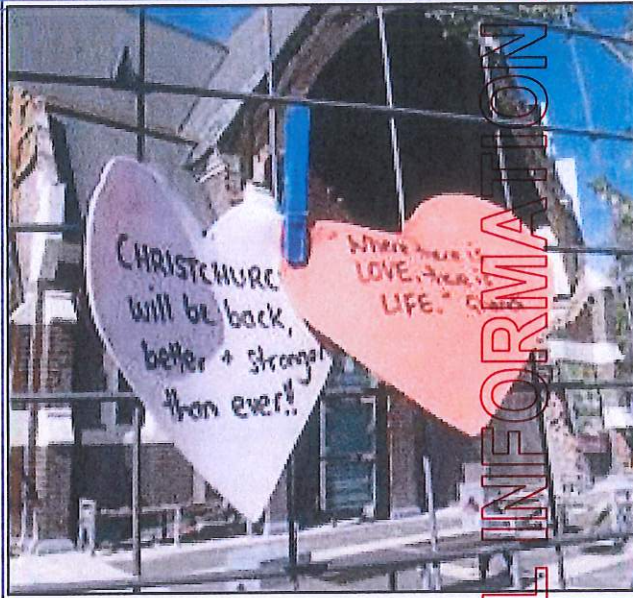 CHRISTCHURC
will be back,
better + stronger
than ever!!
"Where there is
LOVE, there is
LIFE."
L INFORMATION